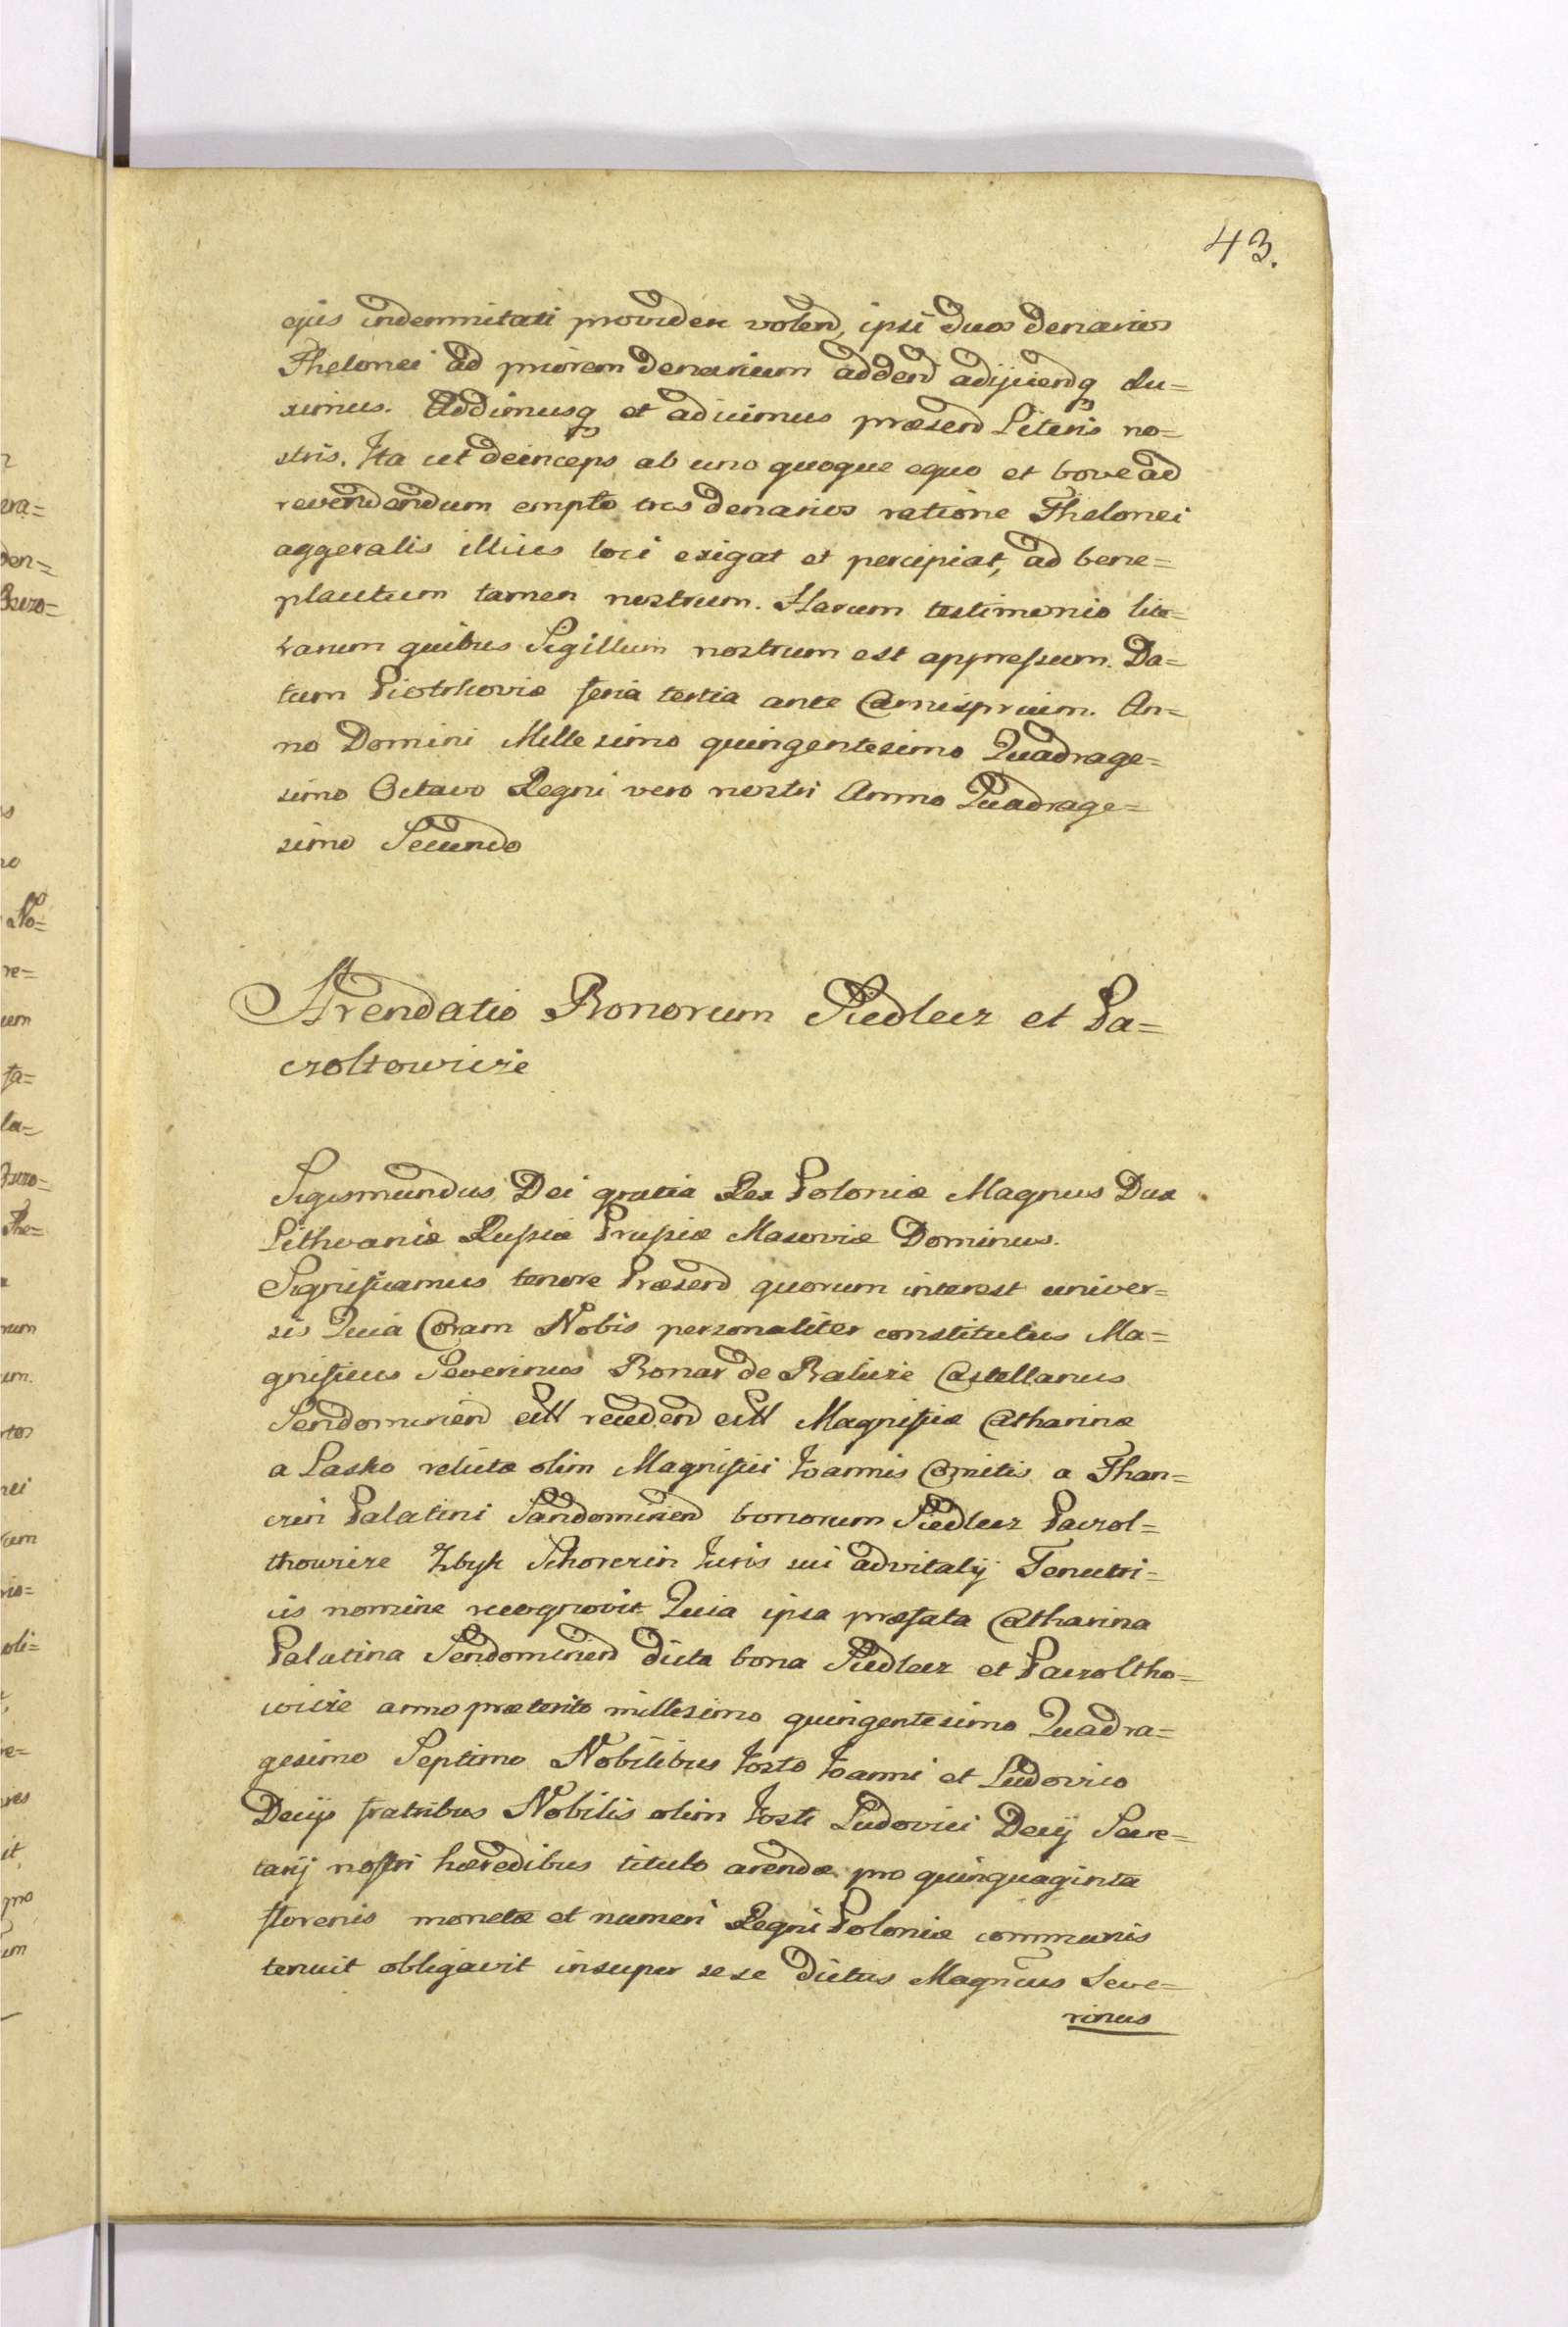 43.
ejus indemnitati providere volend, ipsi duos denarios
Thelonei ad priorem denarium addend adijciendq du=
ximus. Addimusq et adicimus præsend Literis no=
stris. Ita ut deinceps ab uno quoque equo et bove ad
revendendum empto tres denarios ratione Thelonei
aggeralis illius loci exigat et percipiat, ad bene=
placitum tamen nostrum. Harum testimonio lite=
rarum quibus Sigillum nostrum est appressum. Da=
tum Piotrkoviæ feria tertia ante Carnisprivium. An=
no Domini Millesimo quingentesimo Quadrage=
simo Octavo Regni vero nostri Anno Quadrage=
simo Secundo
Arendatio Bonorum Siedlecz et Pa=
czoltowicze
Sigismundus Dei gratia Rex Poloniæ Magnus Dux
Lithvaniæ Russiæ Prussiæ Masoviæ Dominus.
Significamus tenore Præsend quorum interest univer=
sis Quia Coram Nobis personaliter constitutus Ma=
gnificus Severinus Bonar de Balicze Castellanus
Sendomirien ett recedend ett Magnificæ Catharinæ
a Lasko relictæ olim Magnifici Joannis Comitis a Than=
czin Palatini Sandomirien bonorum Siedlecz Paczol=
thowicze Zbyk Schorczin Juris sui advitalij Tenutri=
cis nomine recognovit Quia ipsa præfata Catharina
Palatina Sendomirien dicta bona Siedlecz et Paczoltho=
wicze anno præterito millesimo quingentesimo Quadra=
gesimo Septimo Nobilibus Josto Joanni et Ludovico
Decijs fratribus Nobilis olim Josti Ludovici Decij Secre=
tarij nostri hæredibus titulo arendæ pro quinquaginta
florenis monetæ et numeri Regni Poloniæ communis
tenuit obligavit insuper sese dictus Magncus Seve=
rinus